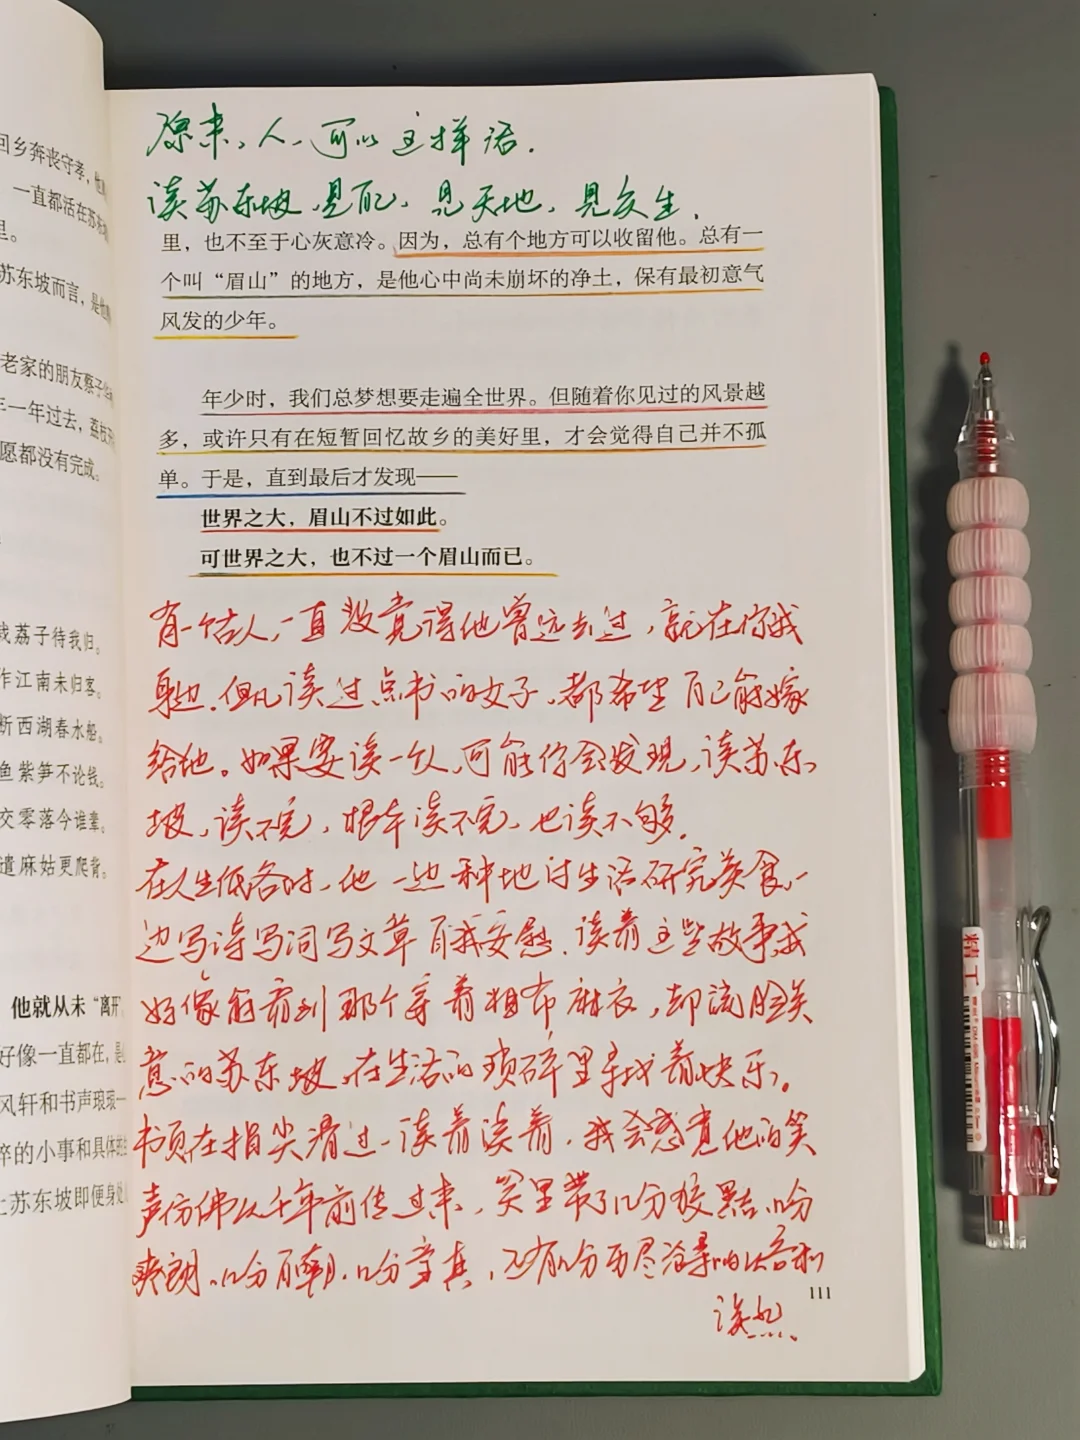 回乡奔丧守孝，他
一直都活在苏东坡
里。
苏东坡而言，是他
老家的朋友蔡子华
年一年过去，荔枝
愿都没有完成。
栽荔子待我归。
作江南未归客。
断西湖春水船。
鱼紫笋不论钱。
交零落今谁辈。
遣麻姑更爬背。
他就从未“离开
好像一直都在，是
风轩和书声琅琅一
碎的小事和具体的
上苏东坡即便身处
原来，人，可以这样活.
读苏东坡，见自己，见天地，见众生.
里，也不至于心灰意冷。因为，总有个地方可以收留他。总有一
个叫“眉山”的地方，是他心中尚未崩坏的净土，保有最初意气
风发的少年。
年少时，我们总梦想要走遍全世界。但随着你见过的风景越
多，或许只有在短暂回忆故乡的美好里，才会觉得自己并不孤
单。于是，直到最后才发现——
世界之大，眉山不过如此。
可世界之大，也不过一个眉山而已。
有一个古人，一直没觉得他曾远去过，就在你我
身边.但凡读过点书的女子，都希望自己能嫁
给他。如果要读一个人，可能你会发现，读苏东
坡，读不完，根本读不完，也读不够.
在人生低谷时，他一边种地讨生活研究美食，一
边写诗写词写文章自我安慰.读着这些故事，我
好像能看到那个穿着粗布麻衣，却满脸笑
意的苏东坡，在生活的琐碎里寻找着快乐。
书页在指尖滑过，读着读着，我会感觉他的笑
声仿佛从千年前传过来，笑里带了几分狡黠，几分
爽朗，几分自嘲，几分率真，还有几分历尽沧桑的从容和
淡然....
111
精工